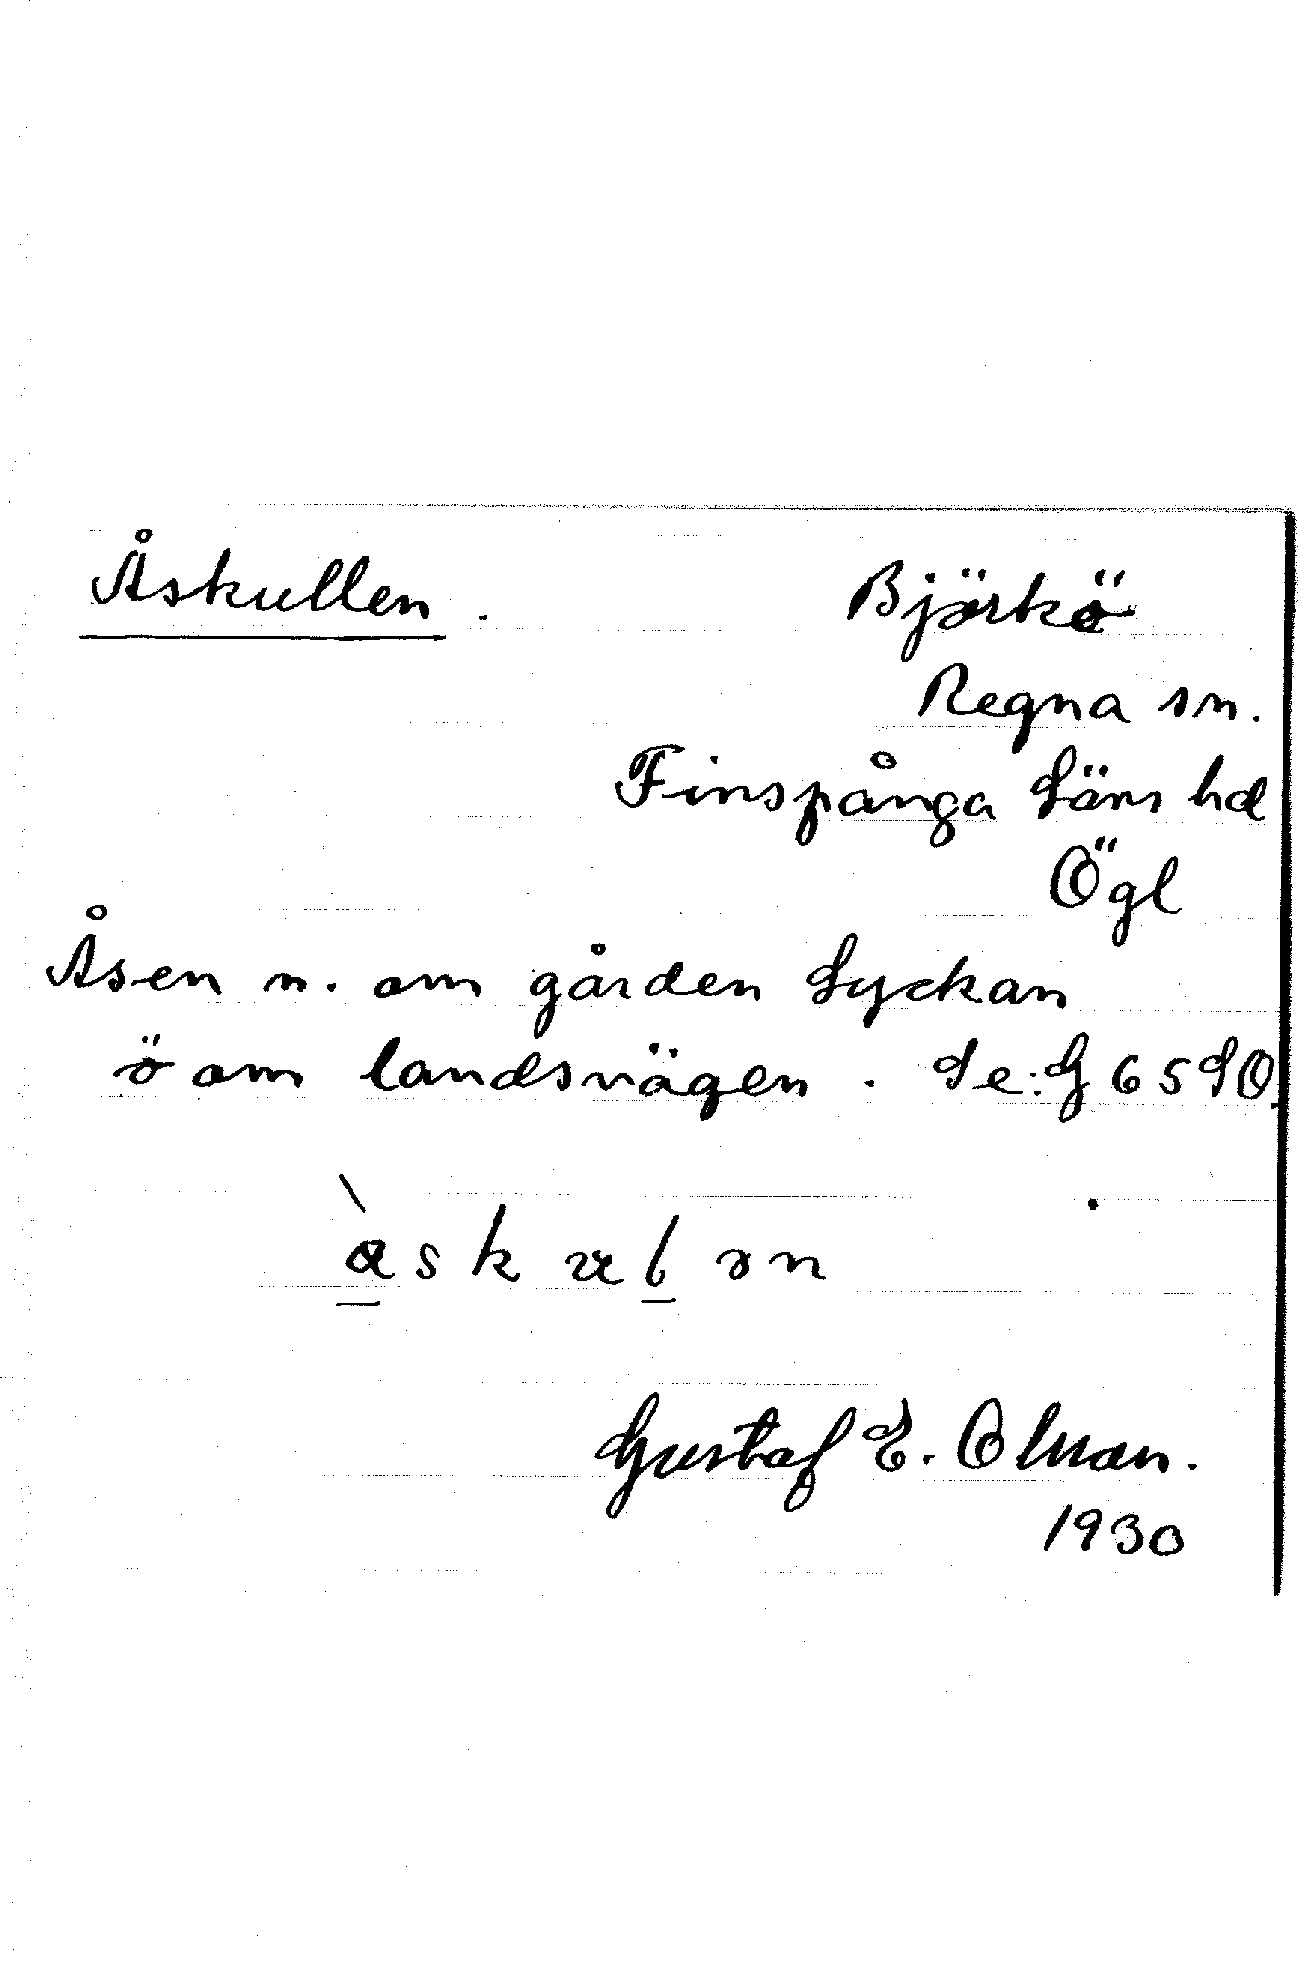 Åskullen. Björkö
Regna sn.
Finspånga Läns hd
Ögl
Åsen n. om gården Lyckan
ö om landsvägen. Se: G 65 SO.
Gustaf E. Olman.
1930